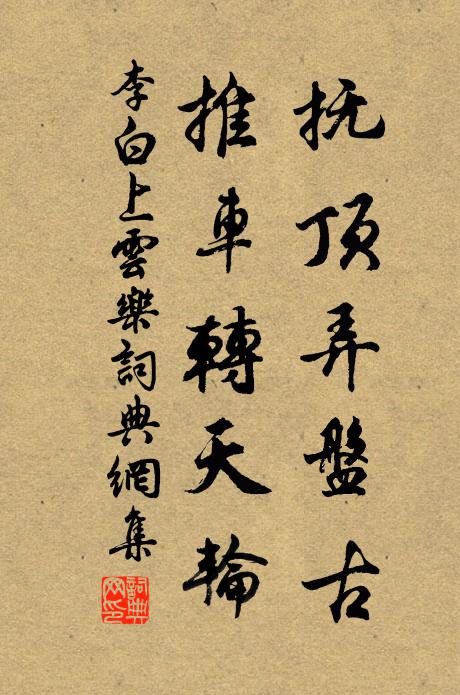 抚頂弄盤古
推車轉天輪
李白上雲樂詞典網集
詞典网印